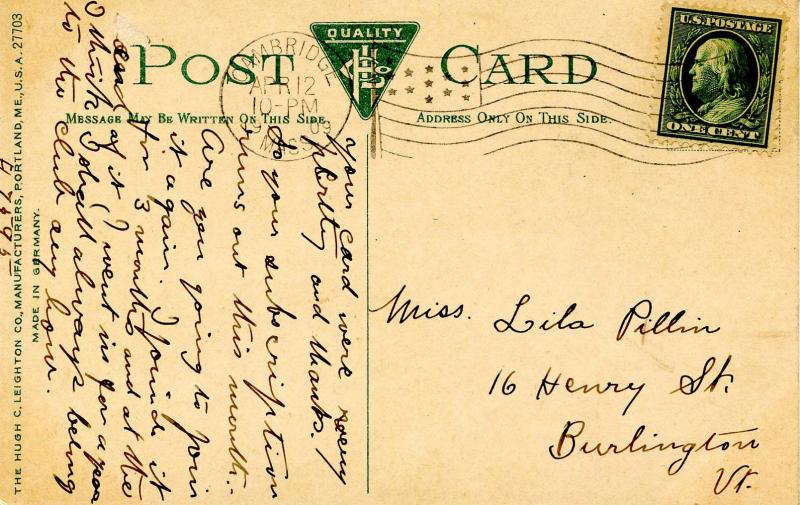 POST CARD
QUALITY
MESSAGE MAY BE WRITTEN ON THIS SIDE.
ADDRESS ONLY ON THIS SIDE.
U.S. POSTAGE
ONE CENT
CAMBRIDGE
APR 12
10-PM
1909
MASS.
your card were very
pretty and thanks.
So your subscription
runs out this month.-
Are you going to join
it again. I joined it
for 3 months and at the
end of it I went in for a year
I think I shall always belong
to the club any how.
Miss. Lila Pillin
16 Henry St.
Burlington
Vt.
THE HUGH C. LEIGHTON CO., MANUFACTURERS, PORTLAND, ME., U.S.A. 27703
MADE IN GERMANY.